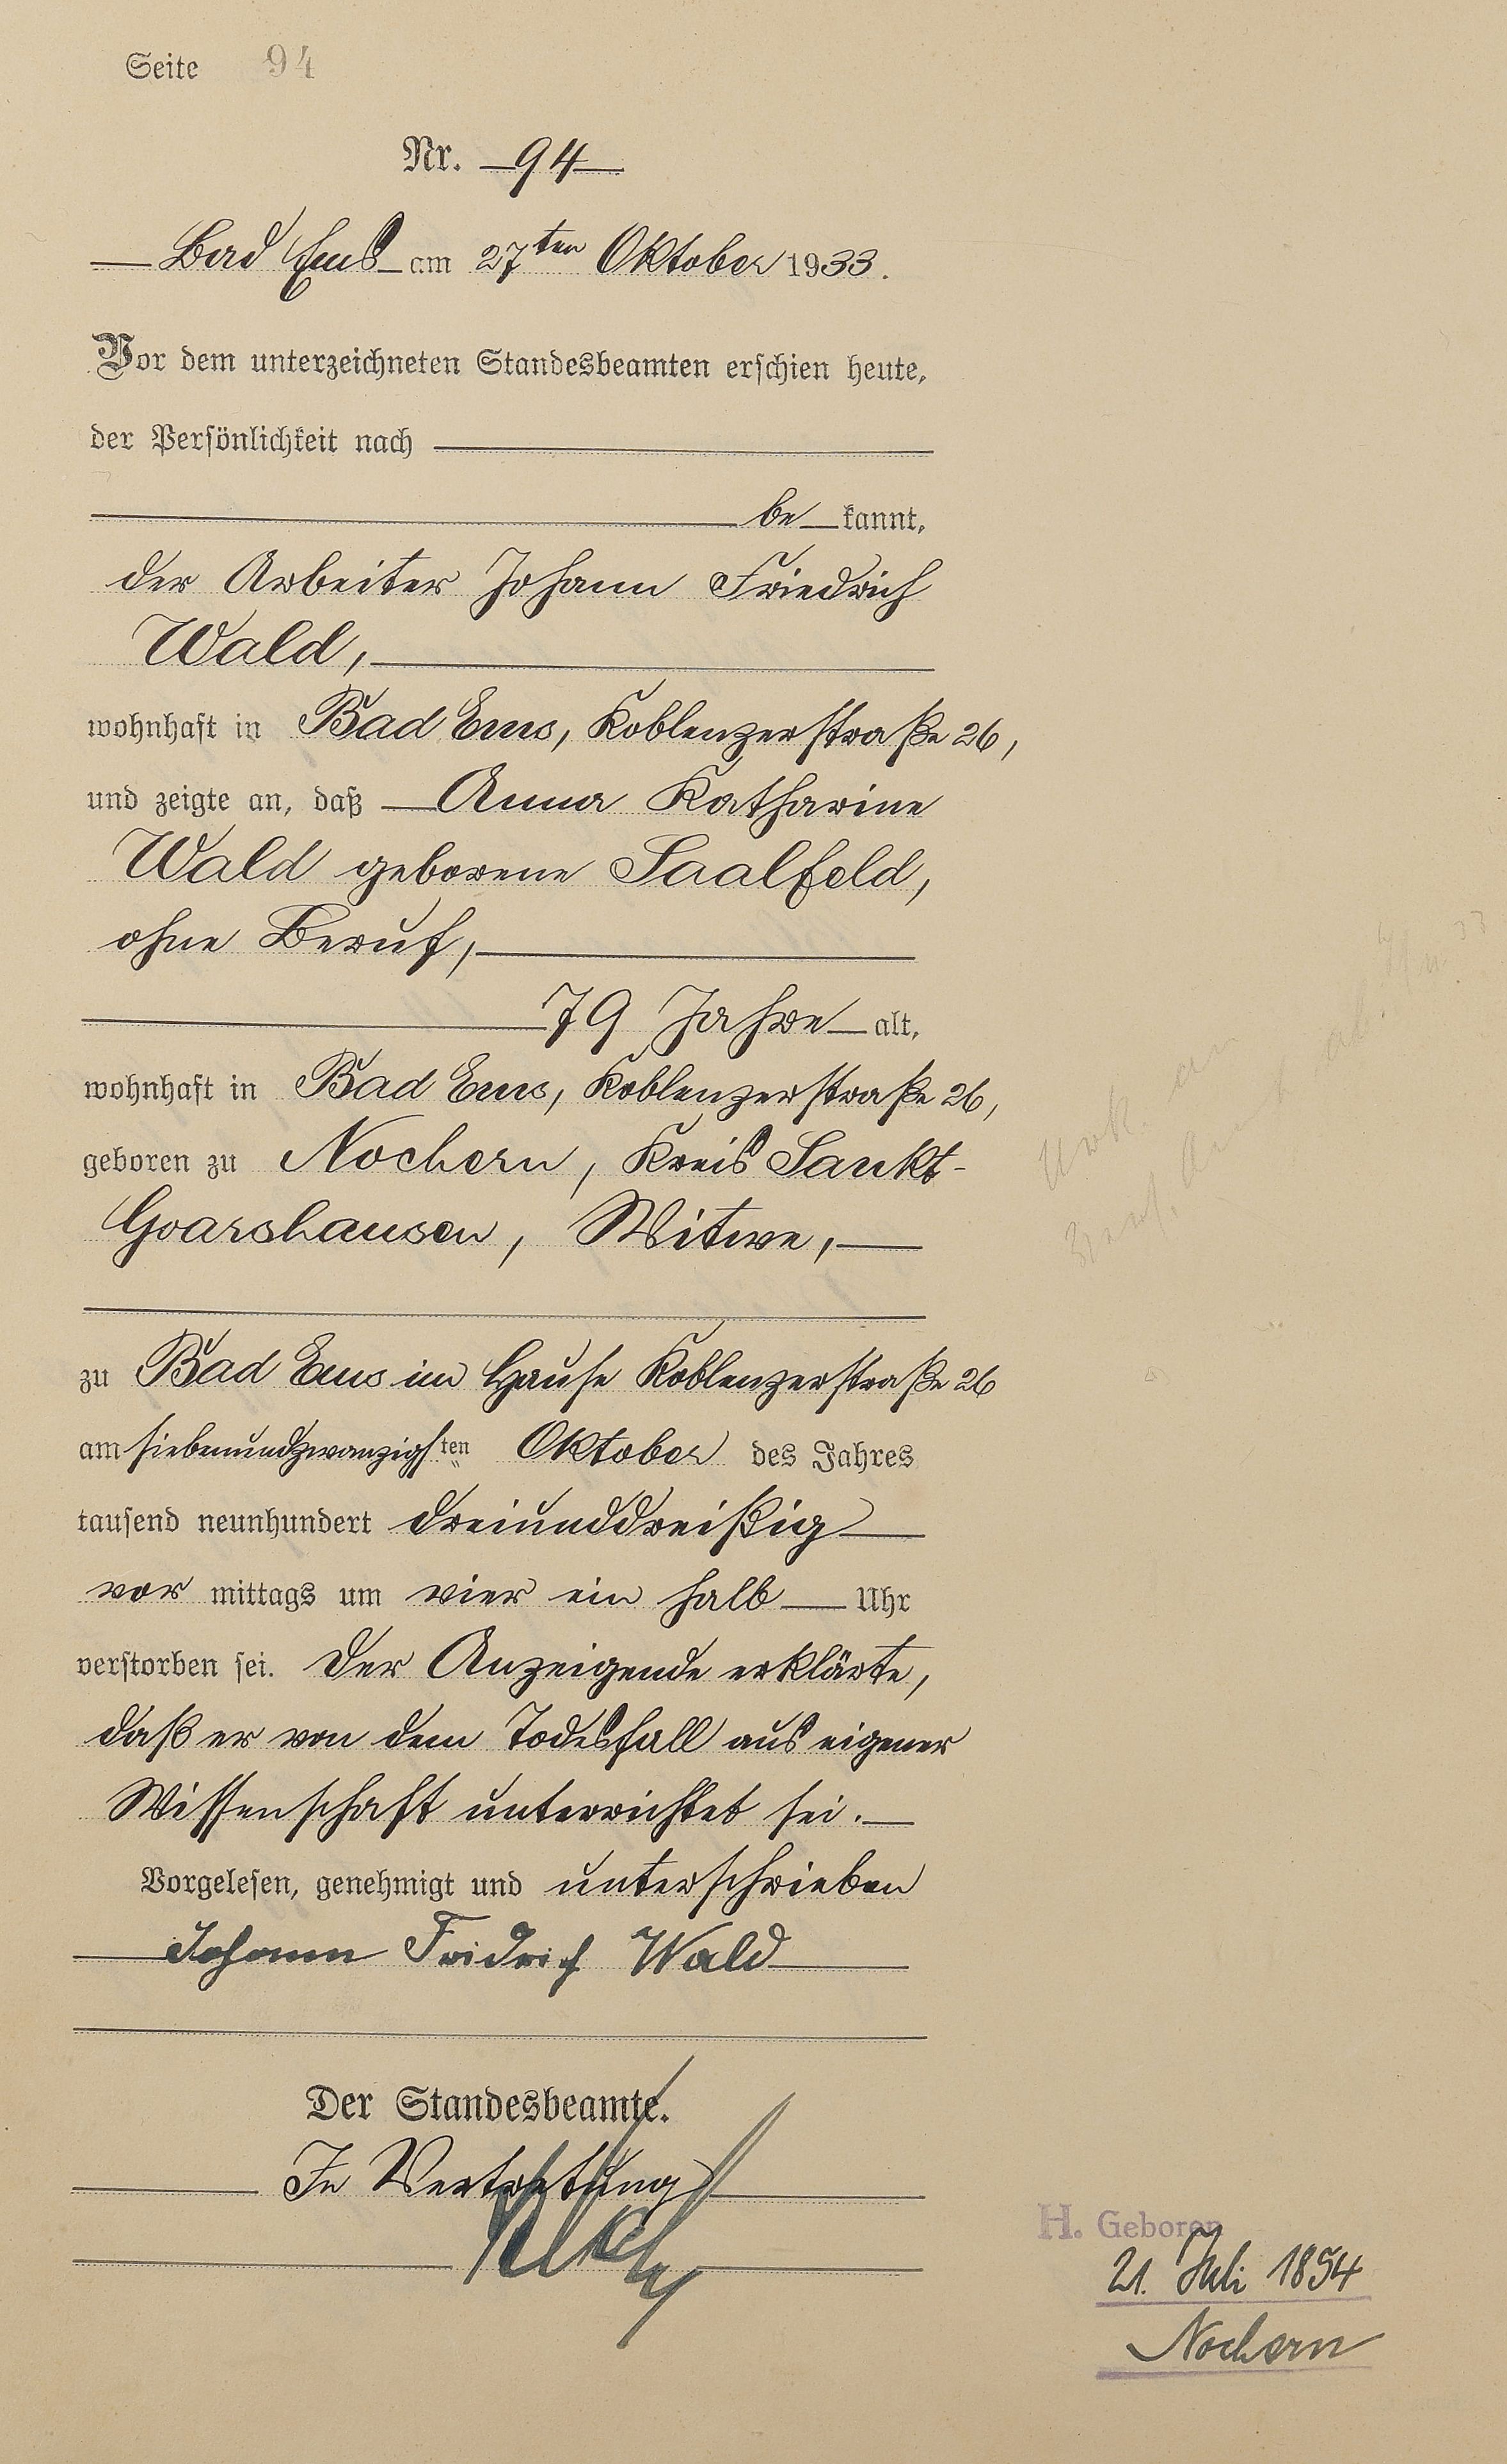 Seite 94
Nr. 94
Bad Ems am 27ten Oktober 1933.
Vor dem unterzeichneten Standesbeamten erschien heute,
der Persönlichkeit nach
be kannt,
der Arbeiter Johann Friedrich
Wald,
wohnhaft in Bad Ems, Koblenzerstraße 26,
und zeigte an, daß Anna Katharine
Wald geborene Saalfeld,
ohne Beruf,
79 Jahre alt,
wohnhaft in Bad Ems, Koblenzerstraße 26,
geboren zu Nochern, Kreis Sankt-
Goarshausen, Witwe,
zu Bad Ems im Hause Koblenzerstraße 26
am siebenundzwanzigsten Oktober des Jahres
tausend neunhundert dreiunddreißig
vor mittags um vier ein halb Uhr
verstorben sei. Der Anzeigende erklärte,
daß er von dem Todesfall aus eigener
Wissenschaft unterrichtet sei.
Vorgelesen, genehmigt und unterschrieben
Johann Fridrich Wald
Der Standesbeamte.
In Vertretung
H. Geboren
21. Juli 1854
Nochern